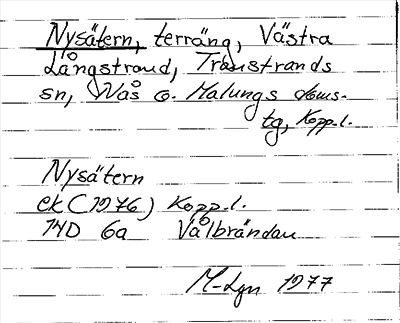 Nysätern, terräng, Västra
Långstrand, Transtrands
sn, Nås o. Malungs doms-
tg, Kopp.l.
Nysätern
ek (1976) Kopp.l.
14D 6a Vålbrändan
M-Lgn 1977